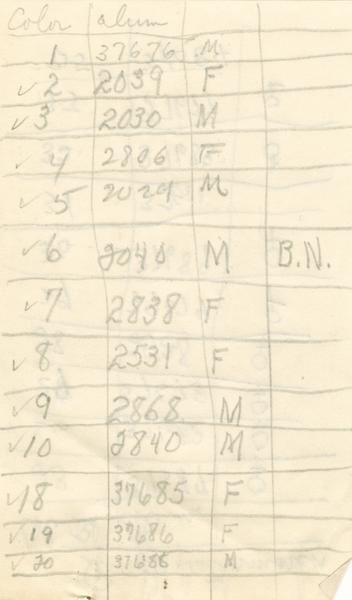 Color alum
1 37676 M
✓2 2039 F
✓3 2030 M
✓4 2806 F
✓5 2029 M
✓6 2040 M B.N.
✓7 2838 F
✓8 2531 F
✓9 2868 M
✓10 2840 M
✓18 37685 F
✓19 37686 F
✓20 M